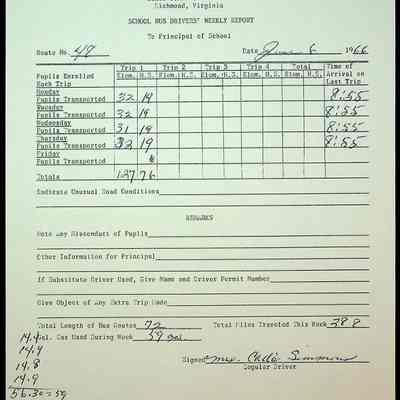 Richmond, Virginia
SCHOOL BUS DRIVERS' WEEKLY REPORT
To Principal of School
Route No. 48 Date June 6 1966
Trip 1 Trip 2 Trip 3 Trip 4 Total Time of
Pupils Enrolled Elem. H.S. Elem. H.S. Elem. H.S. Elem. H.S. Elem. H.S. Arrival on
Each Trip Last Trip
Monday
Pupils Transported 32 19 8:55
Tuesday
Pupils Transported 32 19 8:55
Wednesday
Pupils Transported 31 19 8:55
Thursday
Pupils Transported 32 19 8:55
Friday
Pupils Transported
Totals 127 76
Indicate Unusual Road Conditions
REMARKS
Note Any Misconduct of Pupils
Other Information for Principal
If Substitute Driver Used, Give Name and Driver Permit Number
Give Object of Any Extra Trip Made
Total Length of Bus Routes 72 Total Miles Traveled This Week 288
Gal. Gas Used During Week 59 gal.
14.4
14.4
14.8
14.9
56.30 = 59
Signed Mrs. Simmons
Regular Driver